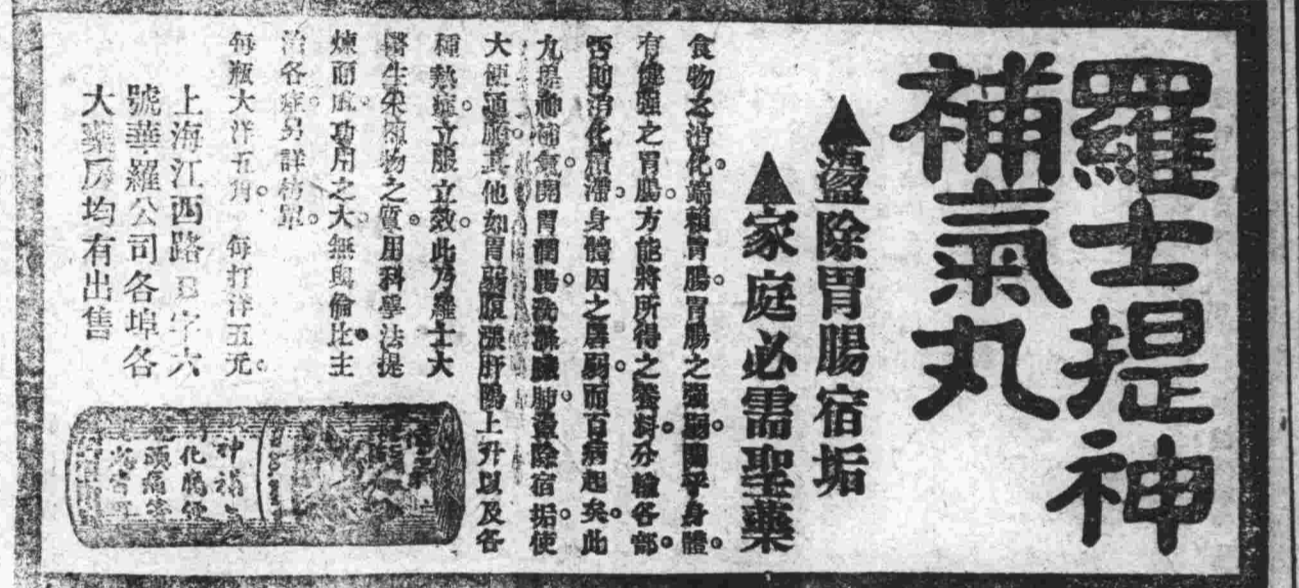 羅士提神
補氣丸
▲盪除胃腸宿垢
▲家庭必需聖藥
食物之消化端賴胃腸。胃腸之強弱關乎身體。
有健強之胃腸。方能將所得之養料。分輸各部。
否則消化積滯。身體因之孱弱。而百病起矣。此
丸提神補氣。開胃潤腸。洗滌臟肺。盪除宿垢。使
大便通順。其他如胃弱腹漲肝陽上升以及各
種熱症。立服立效。此乃羅士大
醫生采植物之質。用科學法提
煉而成。功用之大。無與倫比。主
治各症。另詳仿單。
每瓶大洋五角。每打洋五元。
上海江西路B字六
號華羅公司各埠各
大藥房均有出售
神補
化腸
頭痛